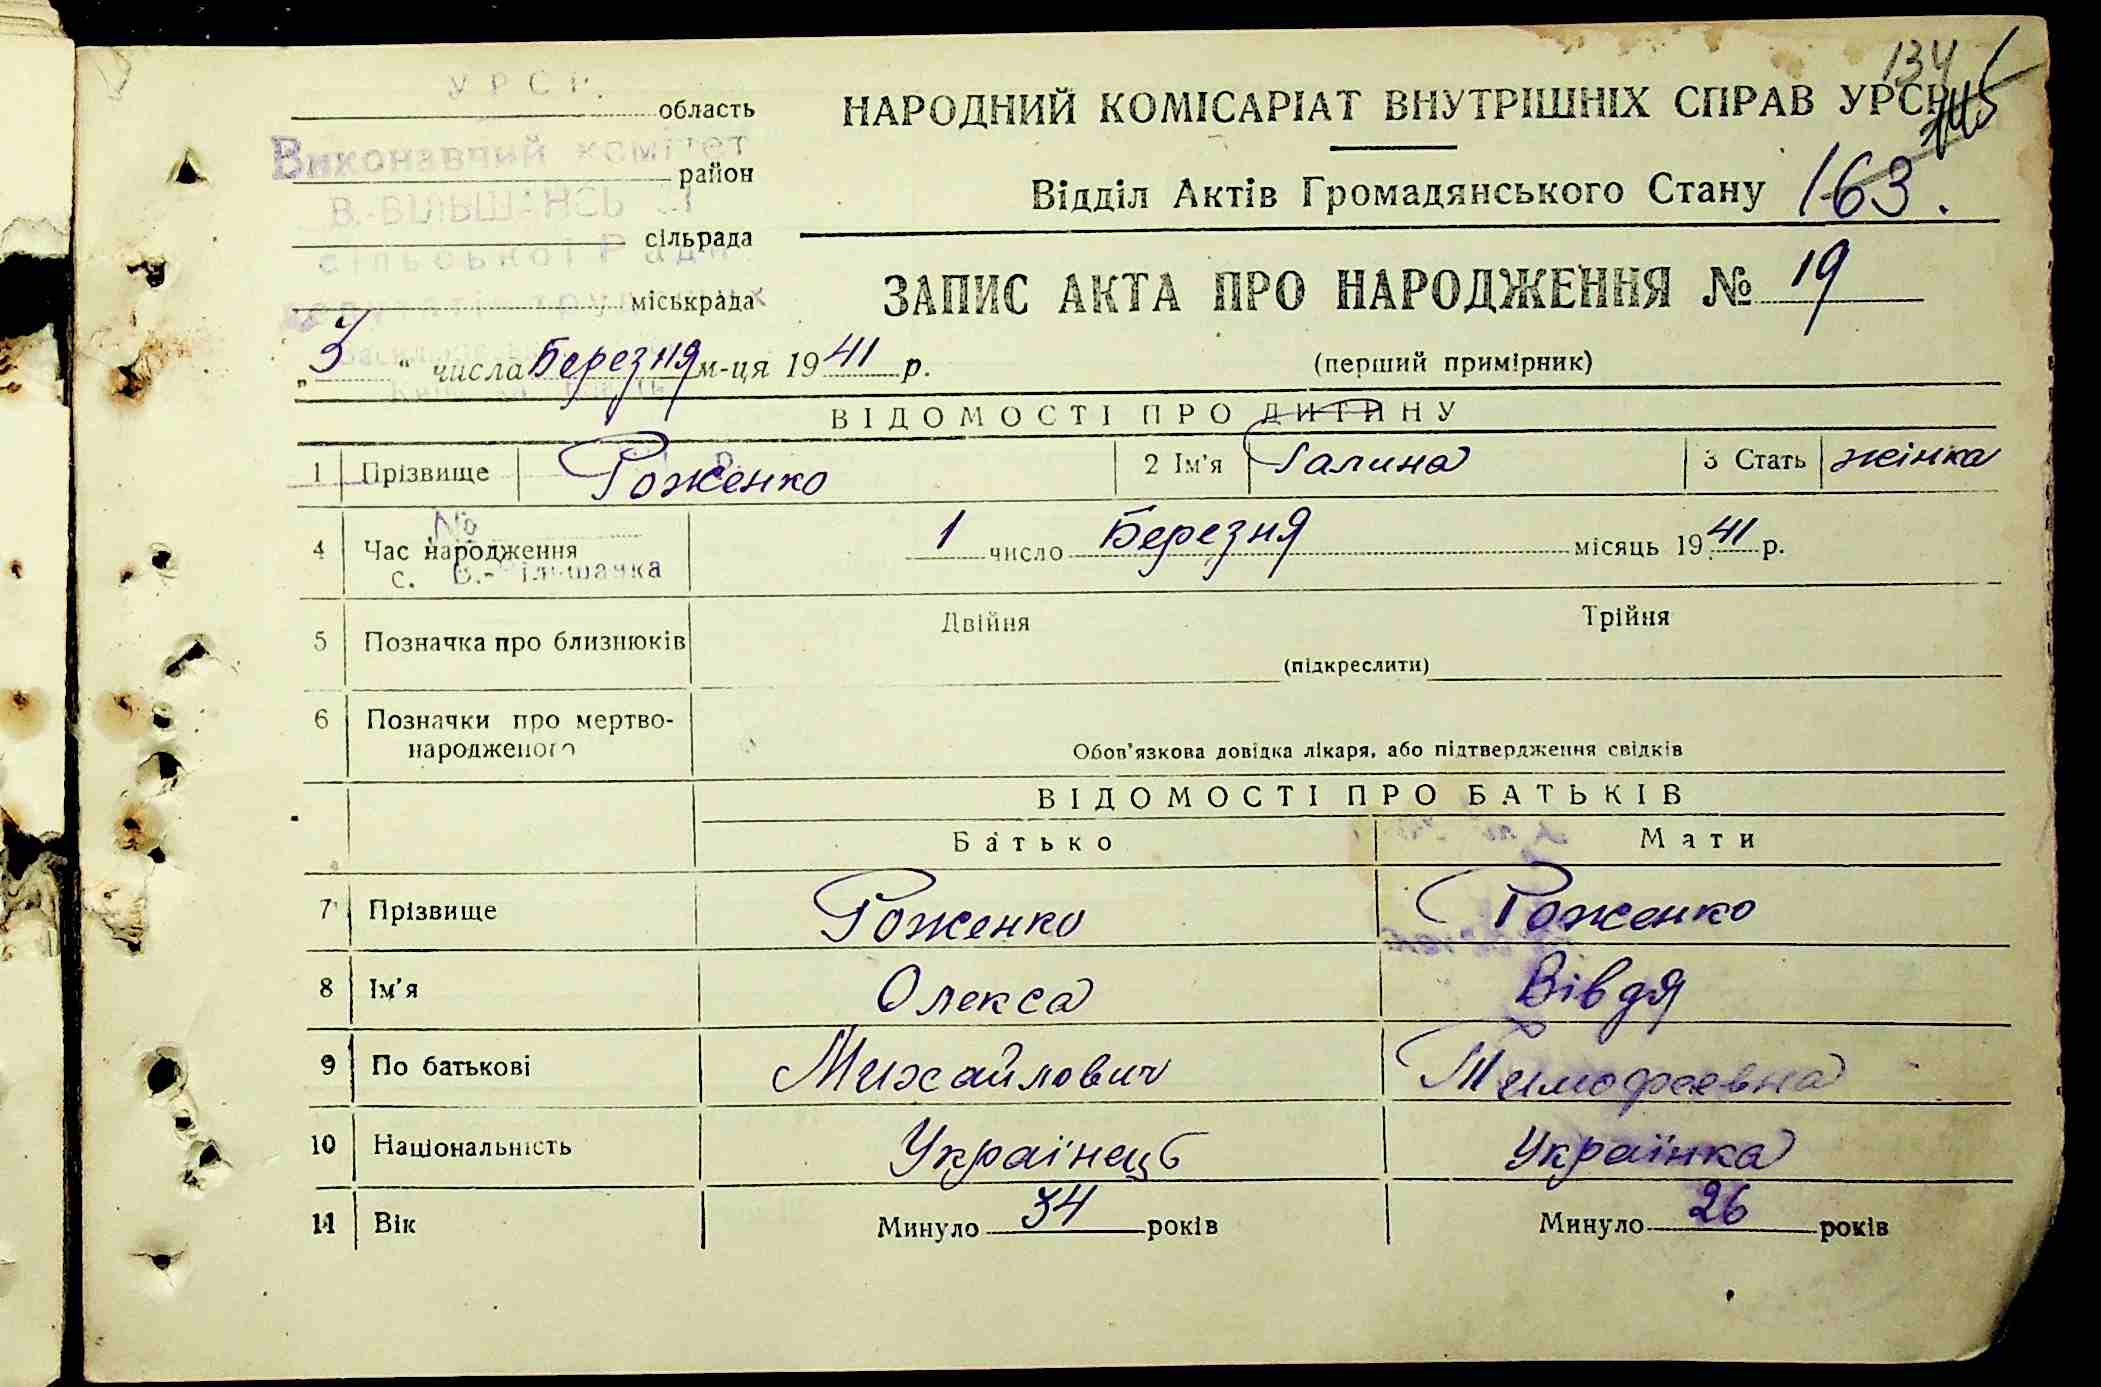 134
145
У Р С Р.
область
НАРОДНИЙ КОМІСАРІАТ ВНУТРІШНІХ СПРАВ УРСР
Виконавчий комітет
район
Відділ Актів Громадянського Стану 163.
В.-ВІЛЬШАНСЬ
сільрада
сільської Ради
міськрада
ЗАПИС АКТА ПРО НАРОДЖЕННЯ № 19
„3“ числа Березня м-ця 1941 р.
(перший примірник)
ВІДОМОСТІ ПРО ДИТИНУ
1 Прізвище Роженко 2 Ім'я Галина 3 Стать жінка
№
4 Час народження 1 число Березня місяць 1941 р.
с. В.-Вільшанка
5 Позначка про близнюків Двійня Трійня
(підкреслити)
6 Позначки про мертво-
народженого
Обов'язкова довідка лікаря, або підтвердження свідків
ВІДОМОСТІ ПРО БАТЬКІВ
Батько Мати
7 Прізвище Роженко Роженко
8 Ім'я Олекса Вівдя
9 По батькові Михайлович Тимофеевна
10 Національність Українець Українка
11 Вік Минуло 34 років Минуло 26 років